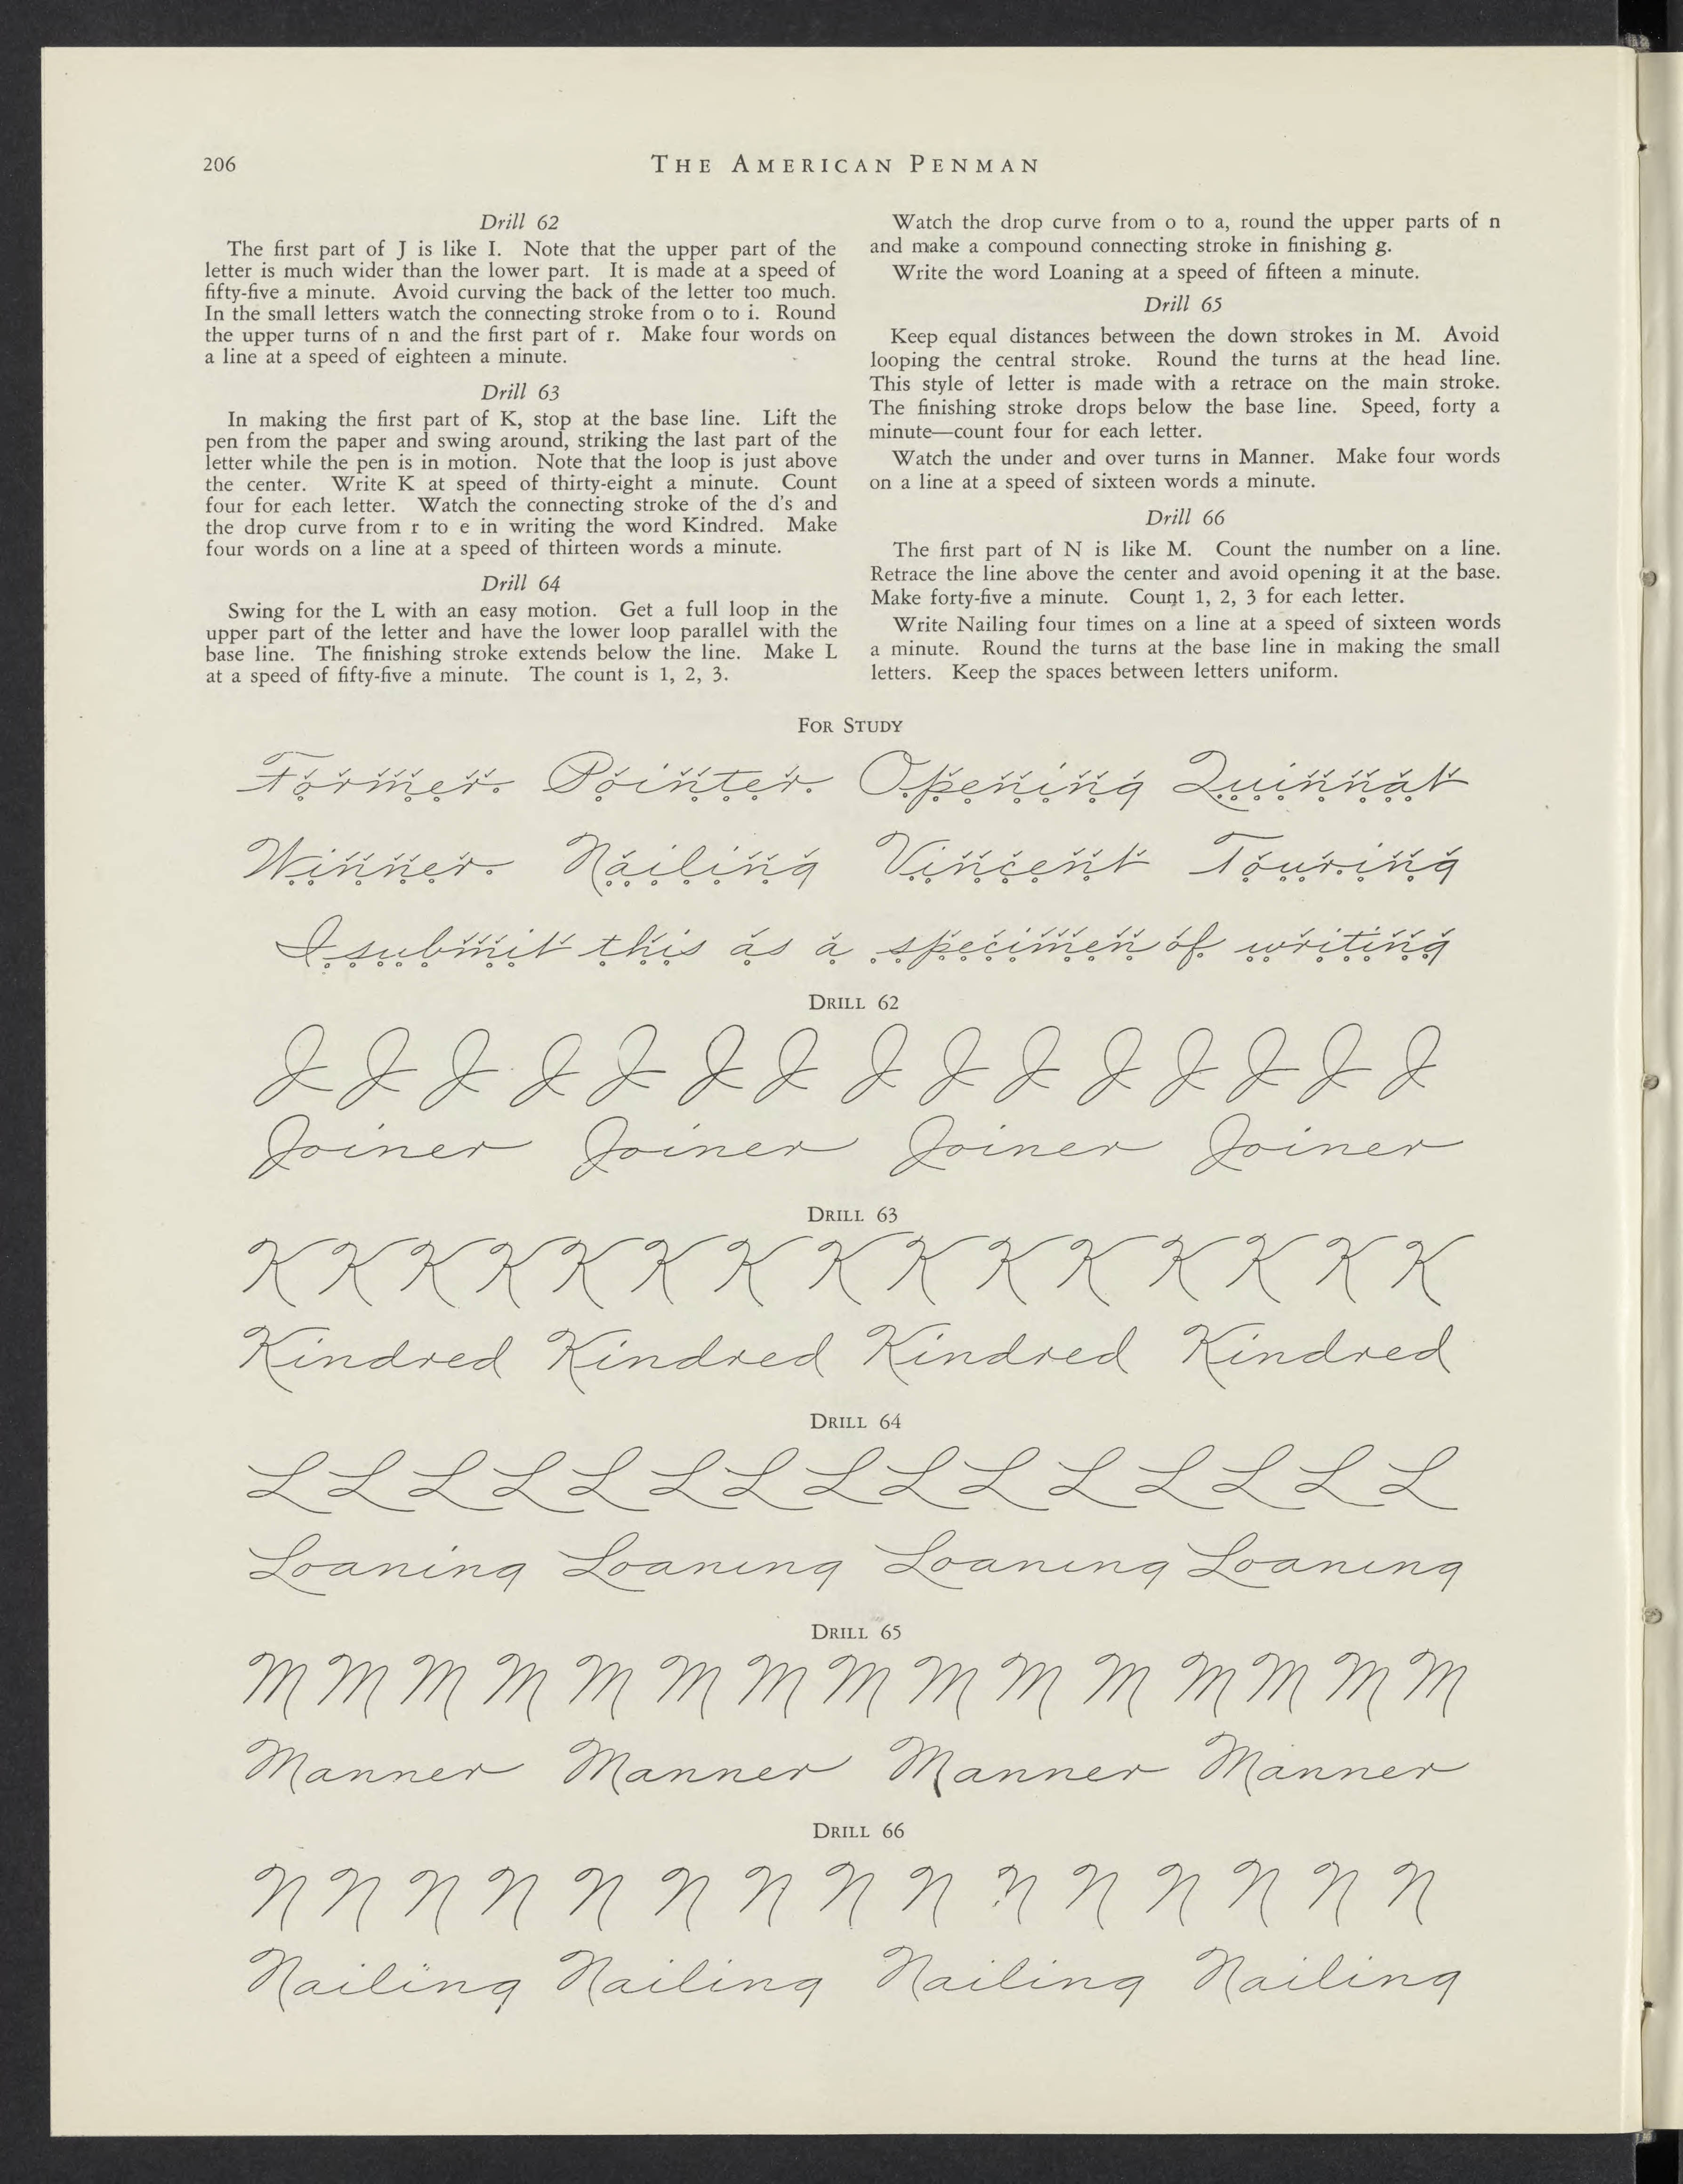 206
THE AMERICAN PENMAN
Drill 62
The first part of J is like I. Note that the upper part of the
letter is much wider than the lower part. It is made at a speed of
fifty-five a minute. Avoid curving the back of the letter too much.
In the small letters watch the connecting stroke from o to i. Round
the upper turns of n and the first part of r. Make four words on
a line at a speed of eighteen a minute.
Drill 63
In making the first part of K, stop at the base line. Lift the
pen from the paper and swing around, striking the last part of the
letter while the pen is in motion. Note that the loop is just above
the center. Write K at speed of thirty-eight a minute. Count
four for each letter. Watch the connecting stroke of the d's and
the drop curve from r to e in writing the word Kindred. Make
four words on a line at a speed of thirteen words a minute.
Drill 64
Swing for the L with an easy motion. Get a full loop in the
upper part of the letter and have the lower loop parallel with the
base line. The finishing stroke extends below the line. Make L
at a speed of fifty-five a minute. The count is 1, 2, 3.
Watch the drop curve from o to a, round the upper parts of n
and make a compound connecting stroke in finishing g.
Write the word Loaning at a speed of fifteen a minute.
Drill 65
Keep equal distances between the down strokes in M. Avoid
looping the central stroke. Round the turns at the head line.
This style of letter is made with a retrace on the main stroke.
The finishing stroke drops below the base line. Speed, forty a
minute—count four for each letter.
Watch the under and over turns in Manner. Make four words
on a line at a speed of sixteen words a minute.
Drill 66
The first part of N is like M. Count the number on a line.
Retrace the line above the center and avoid opening it at the base.
Make forty-five a minute. Count 1, 2, 3 for each letter.
Write Nailing four times on a line at a speed of sixteen words
a minute. Round the turns at the base line in making the small
letters. Keep the spaces between letters uniform.
FOR STUDY
Former. Pointer. Opening Quinnat
Winner. Nailing Vincent Touring
I submit this as a specimen of writing
DRILL 62
J J J J J J J J J J J J J J J
Joiner Joiner Joiner Joiner
DRILL 63
K K K K K K K K K K K K K K K
Kindred Kindred Kindred Kindred
DRILL 64
L L L L L L L L L L L L L L L
Loaning Loaning Loaning Loaning
DRILL 65
M M M M M M M M M M M M M M M
Manner Manner Manner Manner
DRILL 66
N N N N N N N N N N N N N N N
Nailing Nailing Nailing Nailing